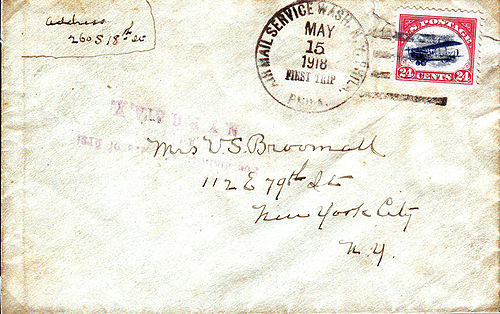 address
2608 18th St
AIR MAIL SERVICE WASH. N.Y. PHILA.
MAY
15
1918
FIRST TRIP
PHILA.
U.S. POSTAGE
24 CENTS 24
Mrs V S Broomall
112 E 79th St
New York City
N.Y.